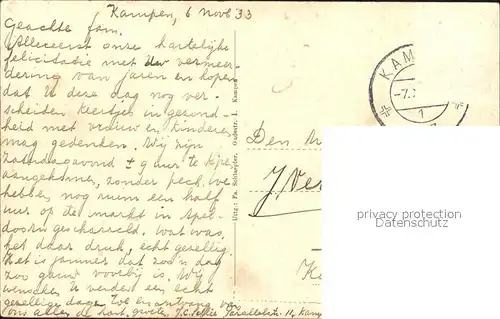 Kampen, 6 Nov. 33
Geachte fam.
Allereerst onze hartelijke
felicitatie met Uw vermeer-
dering van jaren en hopen
dat U deze dag nog ver-
scheiden keertjes in gezond-
heid met vrouw en kinderen
mag gedenken. Wij zijn
zaterdagavond ± 9 uur te
aangekomen, zonder pech. We
hebben nog ruim een half
uur op de markt in Apel-
doorn gescharreld. Wat was
het daar druk, echt gezellig.
Het is jammer dat zoo'n dag
zoo gauw voorbij is. Wij
wenschen U verder een echt
gezellige dag toe en ontvang van
ons allen de hart. groeten
Uitg.: Fa. Schuijder, Oudestr. 1. Kampen
KAM
-7.
1
Den
J. Ve
K
privacy protection
oldthing.de